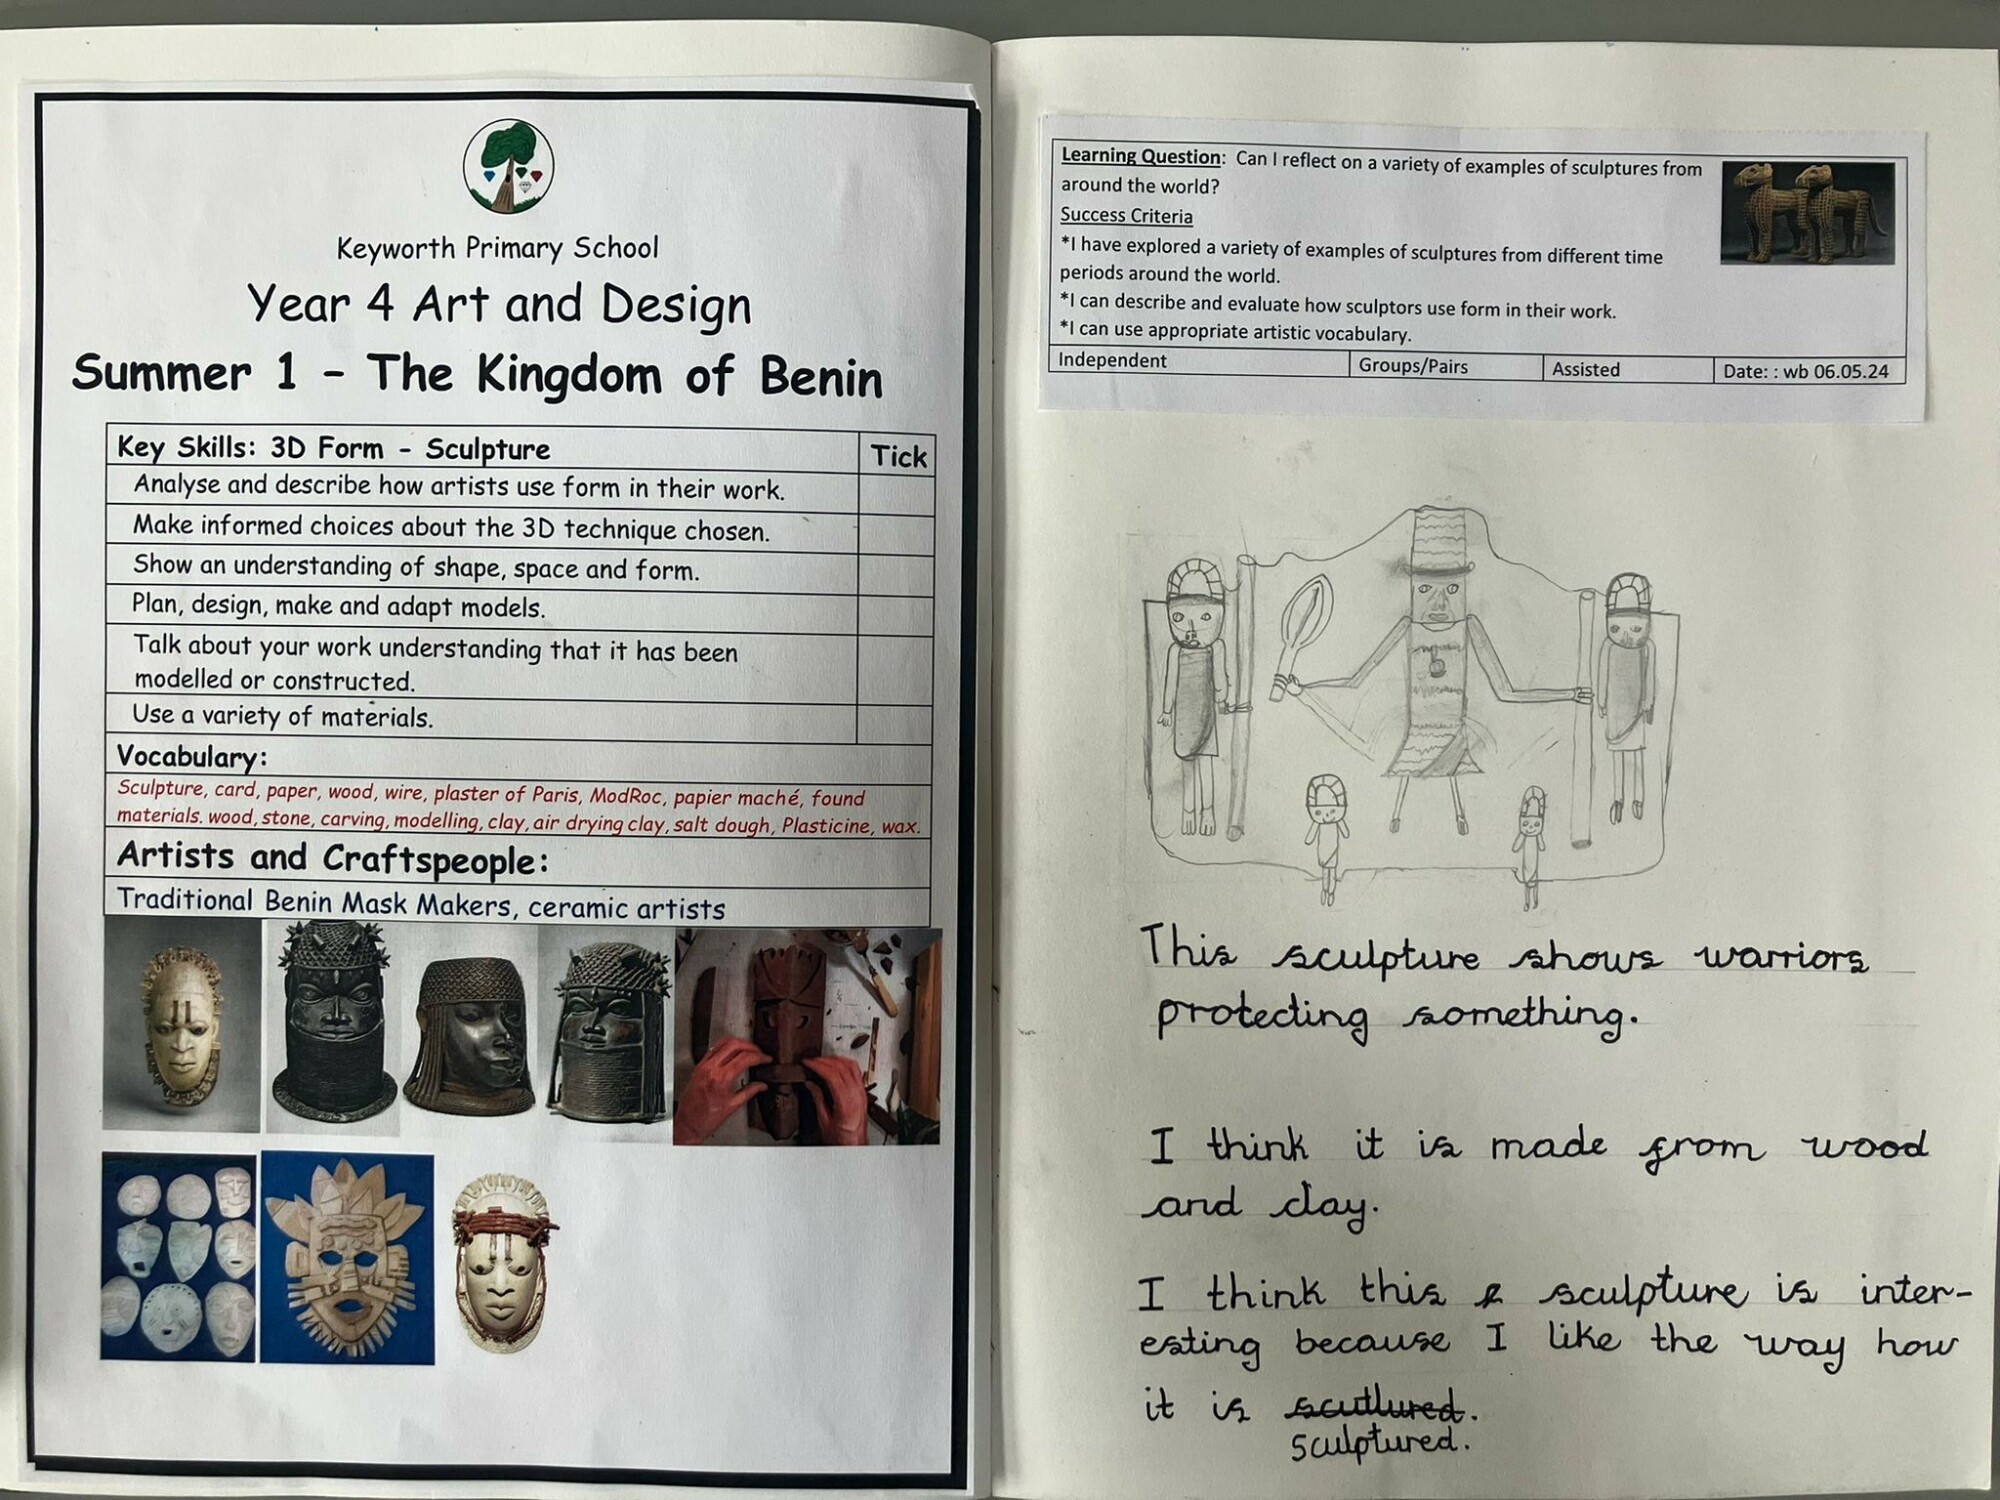 Keyworth Primary School
Year 4 Art and Design
Summer 1 – The Kingdom of Benin
Key Skills: 3D Form - Sculpture Tick
Analyse and describe how artists use form in their work.
Make informed choices about the 3D technique chosen.
Show an understanding of shape, space and form.
Plan, design, make and adapt models.
Talk about your work understanding that it has been
modelled or constructed.
Use a variety of materials.
Vocabulary:
Sculpture, card, paper, wood, wire, plaster of Paris, ModRoc, papier maché, found
materials. wood, stone, carving, modelling, clay, air drying clay, salt dough, Plasticine, wax.
Artists and Craftspeople:
Traditional Benin Mask Makers, ceramic artists
Learning Question: Can I reflect on a variety of examples of sculptures from
around the world?
Success Criteria
*I have explored a variety of examples of sculptures from different time
periods around the world.
*I can describe and evaluate how sculptors use form in their work.
*I can use appropriate artistic vocabulary.
Independent Groups/Pairs Assisted Date: : wb 06.05.24
This sculpture shows warriors
protecting something.
I think it is made from wood
and clay.
I think this sculpture is inter-
esting because I like the way how
it is scutlured.
Sculptured.